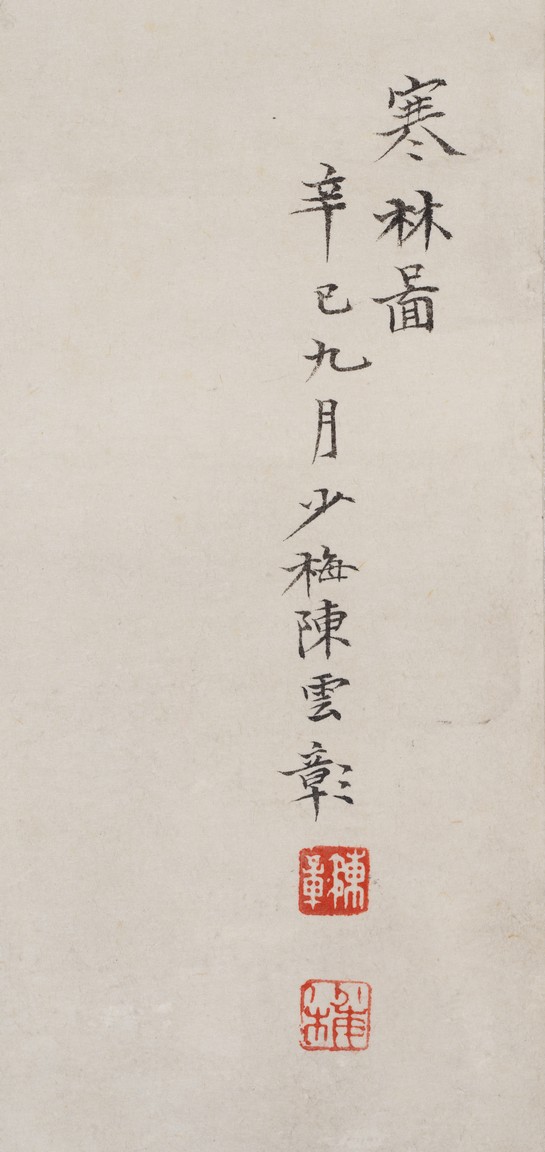 寒林啚
辛巳九月少梅陳雲彰
陳